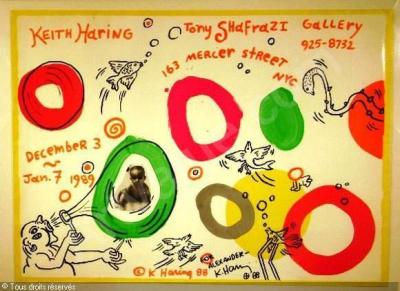 KEITH HARING
TONY SHAFRAZI GALLERY
925-8732
163 MERCER STREET
NYC
DECEMBER 3
~
Jan. 7 1989
© K. Haring 88
ALEXANDER-
K. Haring
⊕ 88
© Tous droits réservés